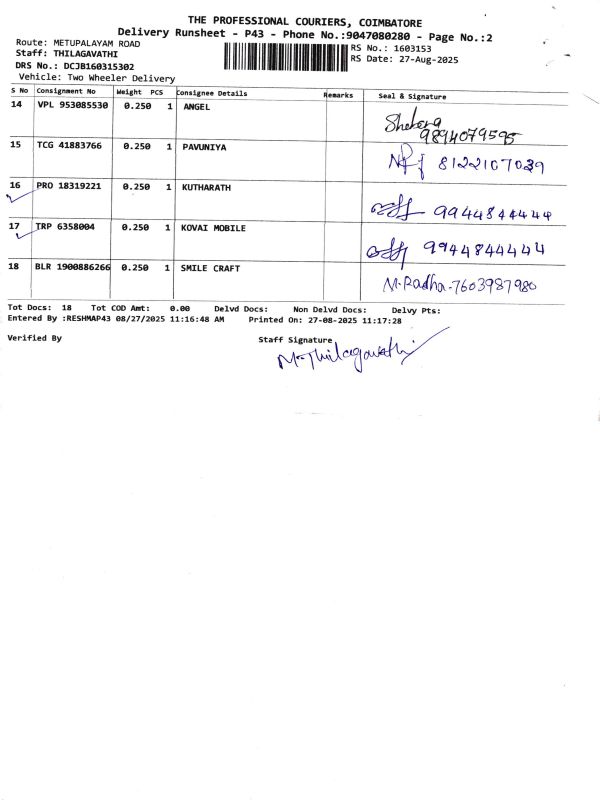 THE PROFESSIONAL COURIERS, COIMBATORE
Delivery Runsheet - P43 - Phone No.:9047080280 - Page No.:2
Route: METUPALAYAM ROAD
Staff: THILAGAVATHI
DRS No.: DCJB160315302
Vehicle: Two Wheeler Delivery
RS No.: 1603153
RS Date: 27-Aug-2025
S No Consignment No Weight PCS Consignee Details Remarks Seal & Signature
14 VPL 953085530 0.250 1 ANGEL Shekeng 9894079595
15 TCG 41883766 0.250 1 PAVUNIYA 8122107029
16 PRO 18319221 0.250 1 KUTHARATH 9944844444
17 TRP 6358004 0.250 1 KOVAI MOBILE 9944844444
18 BLR 1900886266 0.250 1 SMILE CRAFT M.Radha-7603987980
Tot Docs: 18 Tot COD Amt: 0.00 Delvd Docs: Non Delvd Docs: Delvy Pts:
Entered By :RESHMAP43 08/27/2025 11:16:48 AM Printed On: 27-08-2025 11:17:28
Verified By Staff Signature
M.Thilagavathi